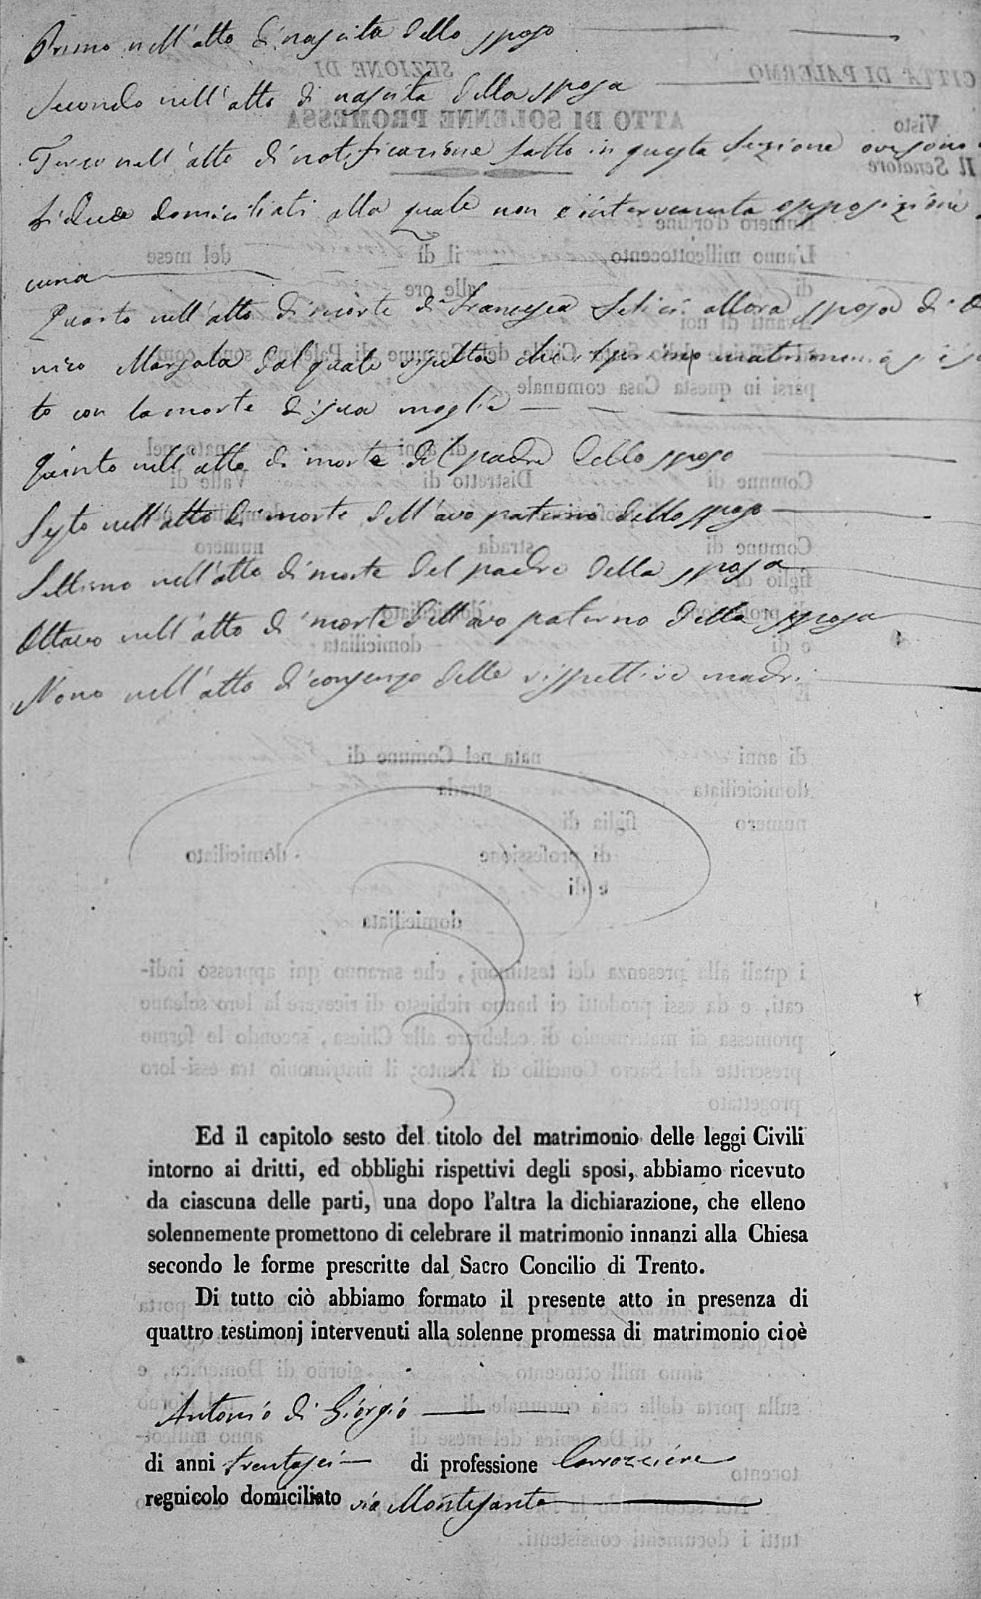 Primo nell'atto di nascita dello sposo
Secondo nell'atto di nascita della sposa
Terzo nell'atto di notificazione fatto in questa Sezione ove sono
domiciliati alla quale non è intervenuta opposizione
cuna
Quarto nell'atto di morte di Francesca allora sposa di
nico dal quale risulta che il primo matrimonio
to con la morte di sua moglie
Quinto nell'atto di morte del padre dello sposo
Sesto nell'atto di morte dell'avo paterno dello sposo
Settimo nell'atto di morte del padre della sposa
Ottavo nell'atto di morte dell'avo paterno della sposa
Nono nell'atto di consenzo delle rispettive madri
Ed il capitolo sesto del titolo del matrimonio delle leggi Civili
intorno ai dritti, ed obblighi rispettivi degli sposi, abbiamo ricevuto
da ciascuna delle parti, una dopo l'altra la dichiarazione, che elleno
solennemente promettono di celebrare il matrimonio innanzi alla Chiesa
secondo le forme prescritte dal Sacro Concilio di Trento.
Di tutto ciò abbiamo formato il presente atto in presenza di
quattro testimonj intervenuti alla solenne promessa di matrimonio cioè
Antonio di Giorgio
di anni trentasei di professione Carrozziere
regnicolo domiciliato via Montesanto